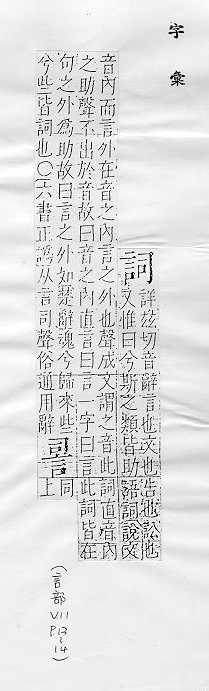 字彙
詞
詳玆切音辭言也文也告也訟也
又惟曰兮斯之類皆助語詞說文
音內而言外在音之內言之外也聲成文謂之音此詞直音內
之助聲不出於音故曰音之內直言曰言一字曰言此詞皆在
句之外為助故曰言之外如楚辭魂兮歸來些
兮些皆詞也〇六書正譌从言司聲俗通用辭
䛐
同
上
(言部 VII P13~14)